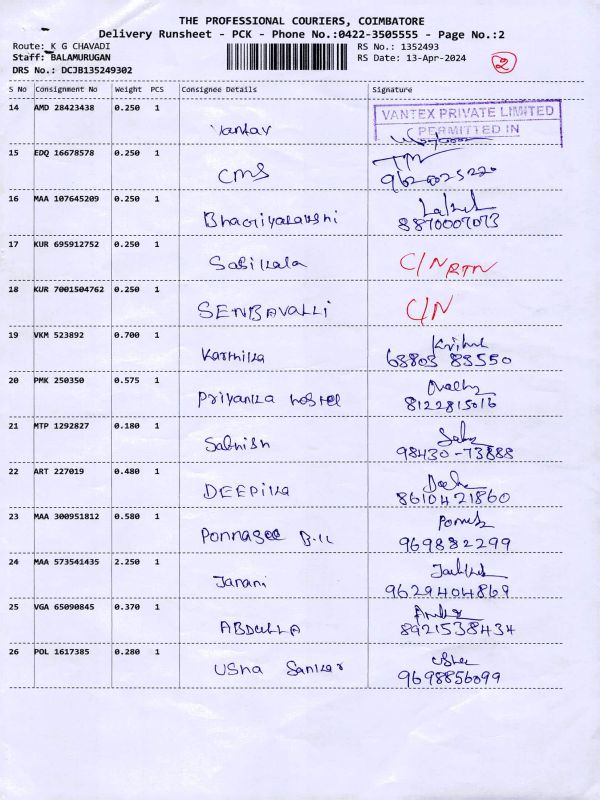 THE PROFESSIONAL COURIERS, COIMBATORE
Delivery Runsheet - PCK - Phone No.:0422-3505555 - Page No.:2
Route: K G CHAVADI RS No.: 1352493
Staff: BALAMURUGAN RS Date: 13-Apr-2024 2
DRS No.: DCJB135249302
S No Consignment No Weight PCS Consignee Details Signature
14 AMD 28423438 0.250 1 VANTEX PRIVATE LIMITED
PERMITTED IN
15 EDQ 16678578 0.250 1 CMS
16 MAA 107645209 0.250 1
8870007073
17 KUR 695912752 0.250 1 Sasikala C/N RTN
18 KUR 7001504762 0.250 1 SENBAVALLI C/N
19 VKM 523892 0.700 1 Karthika
63803 83550
20 PMK 250350 0.575 1 Priyanka hostel
8122815016
21 MTP 1292827 0.180 1
98430-73888
22 ART 227019 0.480 1 DEEPIKA
8610421860
23 MAA 300951812 0.580 1
969882299
24 MAA 573541435 2.250 1 Janani
9629404869
25 VGA 65090845 0.370 1 ABDULLA
8921538434
26 POL 1617385 0.280 1 USha Sankar Usha
9698856099